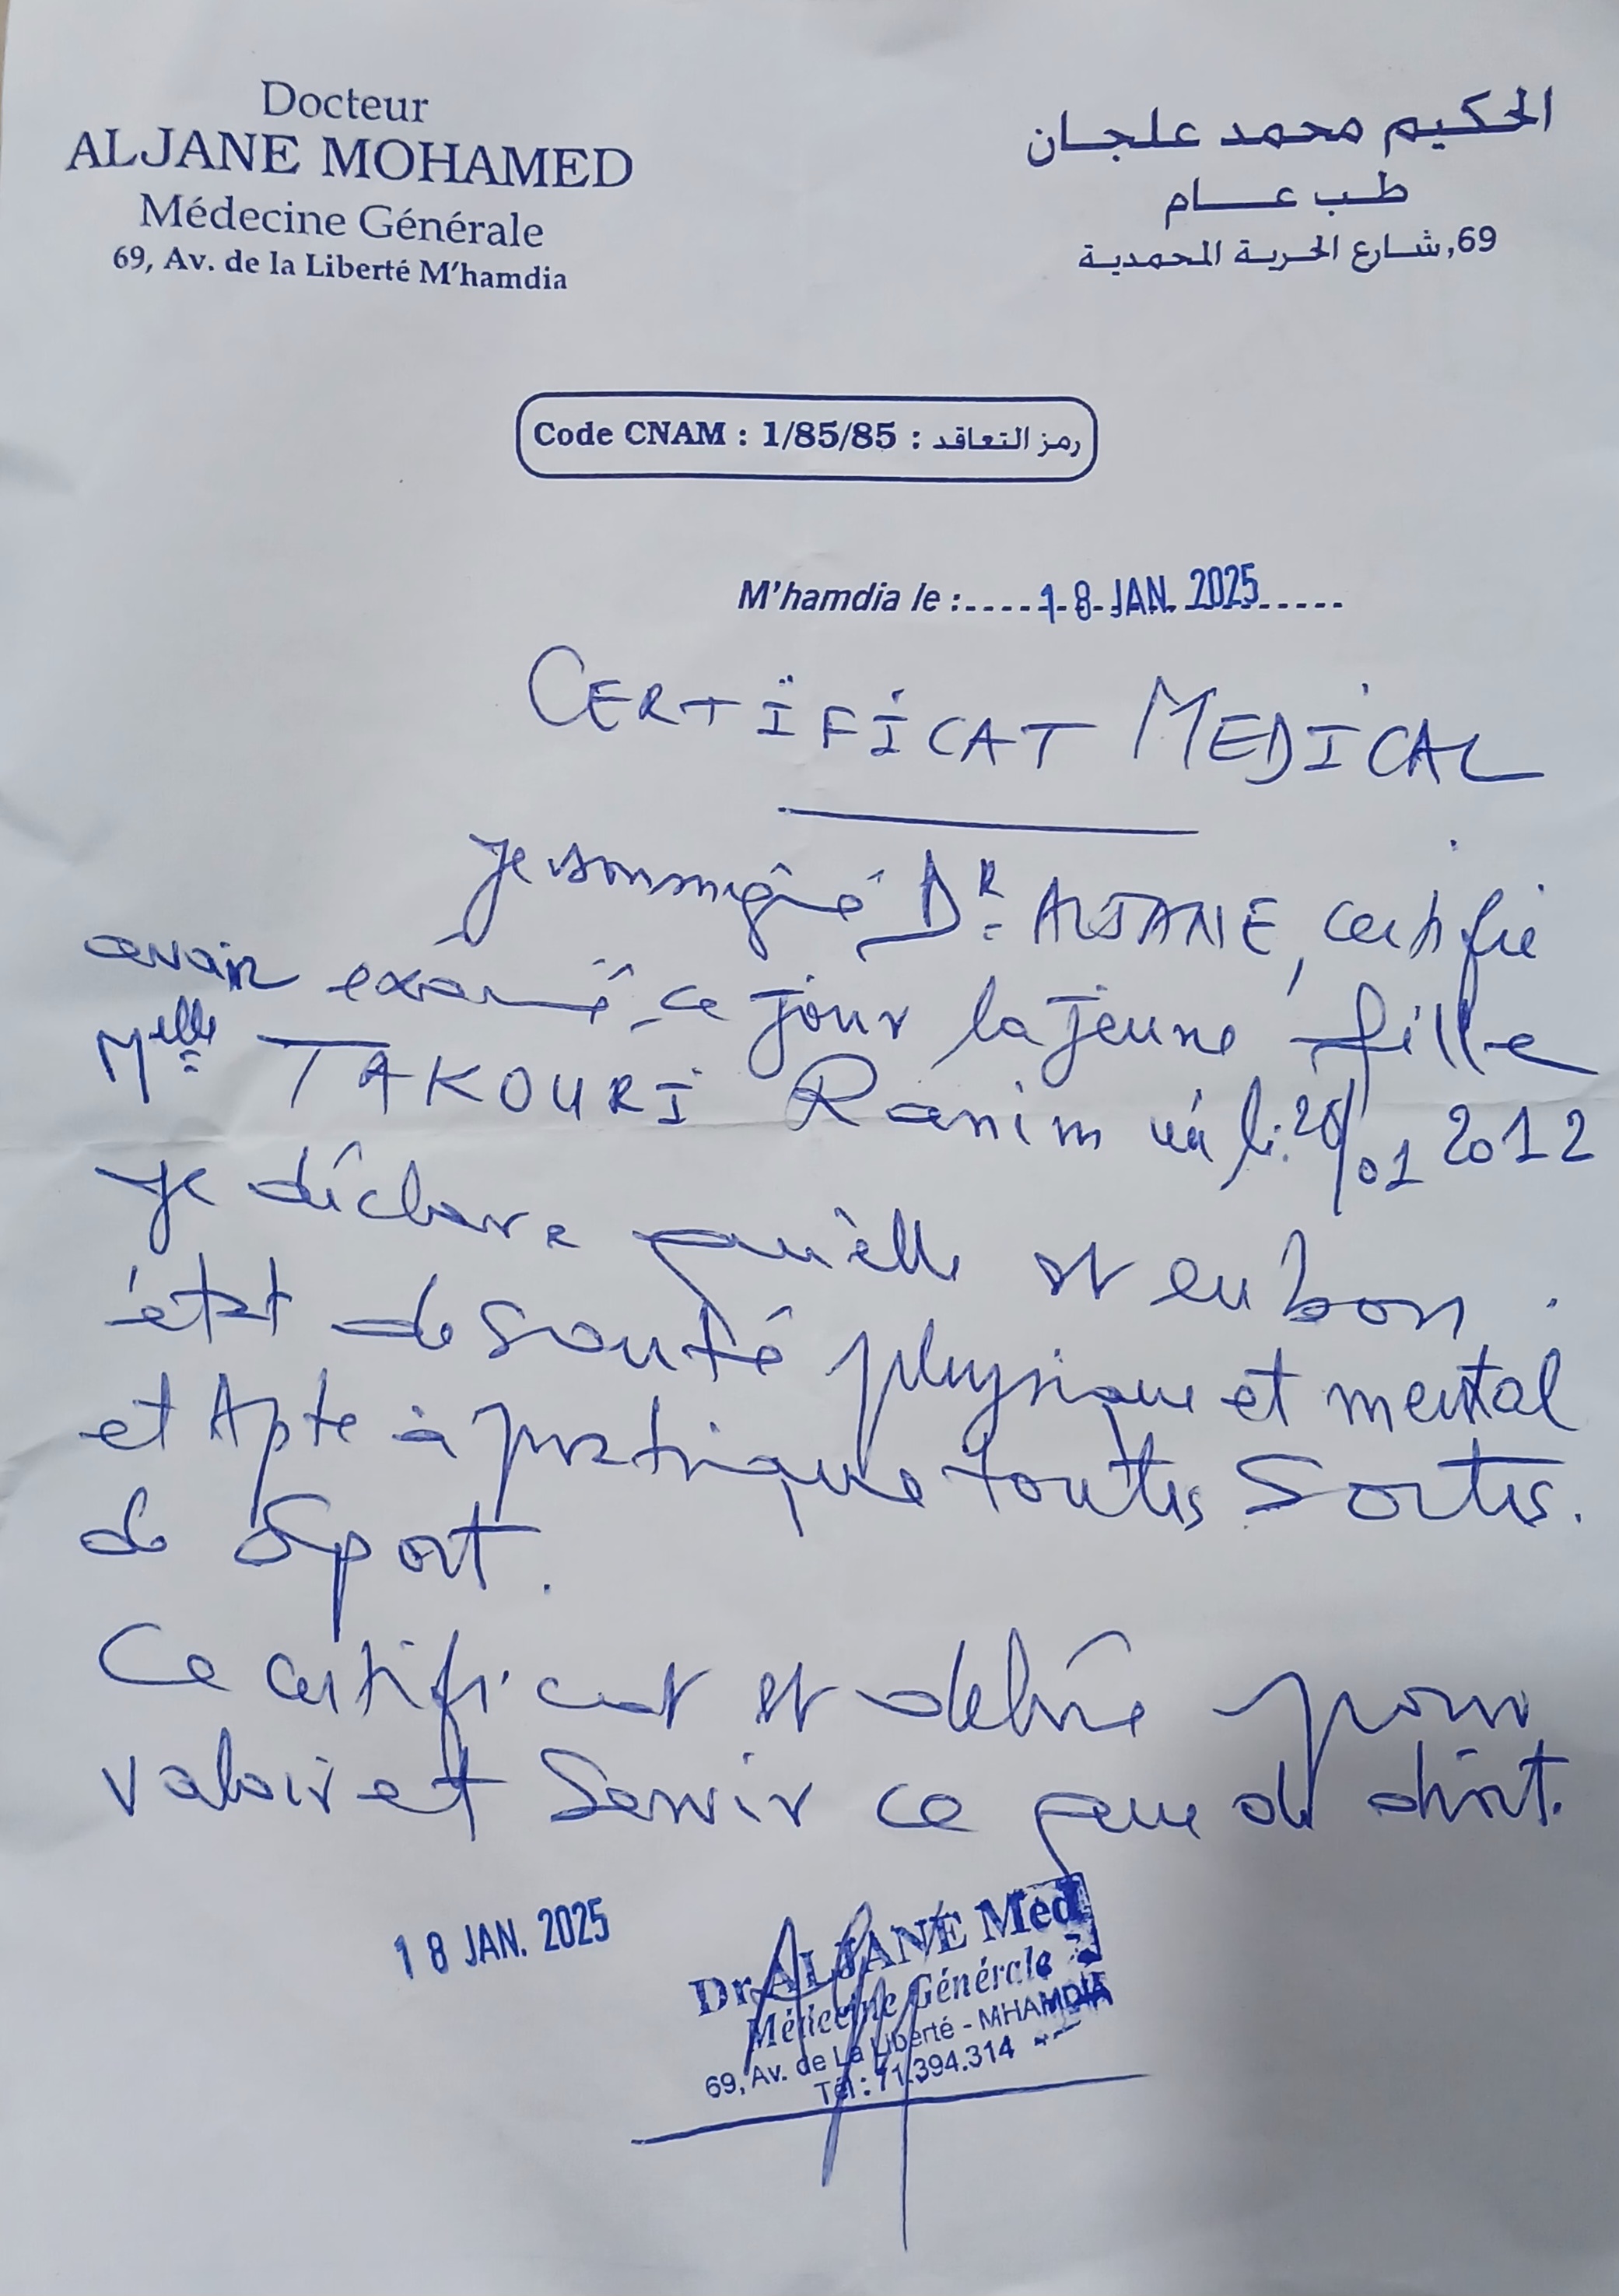 Docteur
ALJANE MOHAMED
Médecine Générale
69, Av. de la Liberté M'hamdia
الحكيم محمد علجان
طب عام
69, شارع الحرية المحمدية
Code CNAM : 1/85/85 : رمز التعاقد
M'hamdia le : 18 JAN. 2025
CERTIFICAT MEDICAL
Je soussigné Dr ALJANE, certifie
avoir examiné ce jour la jeune fille
Melle TAKOURI Ranim né le 01 2012
Je déclare qu'elle est en bon
état de santé physique et mental
et Apte à pratique toutes Sortes.
de Sport.
Ce certificat est délivré pour
valoir et Servir ce que de droit.
18 JAN. 2025
Dr ALJANE Med
Médecine Générale
69, Av. de La Liberté - MHAMDIA
Tél : 71.394.314